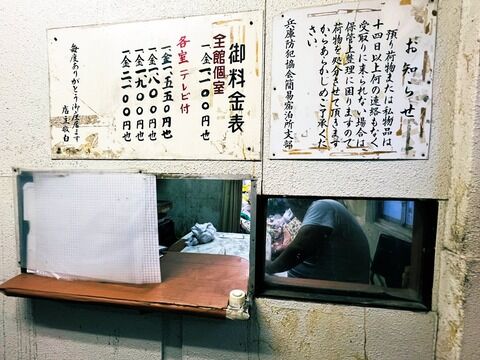 御料金表
全館個室
一金一、一〇〇円也
各室テレビ付
一金一、五五〇円也
一金一、八〇〇円也
一金一、九〇〇円也
一金二、一〇〇円也
毎度ありがとう御座居ます
店主敬白
お知らせ
預り荷物または私物品は
十四日以上何の連絡もなく
受取りに来られない場合は
保管上整理に困りますので
荷物を処分させて頂きます
からあらかじめご了承くだ
さい。
兵庫防犯協会簡易宿泊所支部